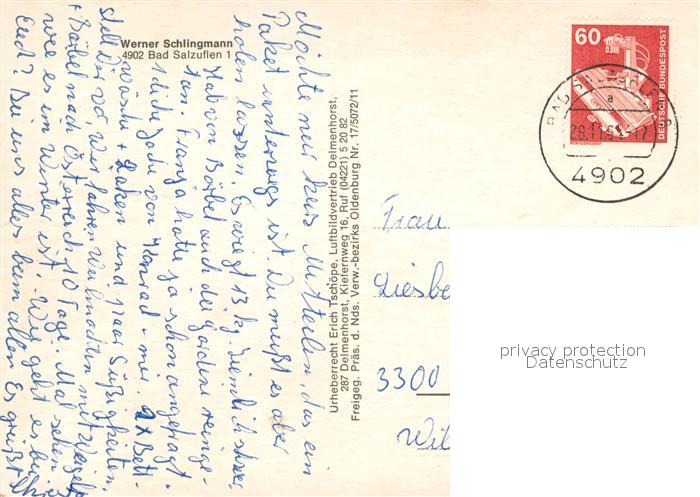 Werner Schlingmann
4902 Bad Salzuflen 1
Möchte nur kurz Mitteilen, das ein
Paket unterwegs ist. Du mußt es aber
holen lassen. Es wiegt 13 kg. Ziemlich schwer.
Hab von Bärbel auch die Gardine reinge-
tan. Franzja hatte ja schon angefragt.
Jacke von Konrad + mir. 2x Bett-
wäsche + Laken und paar Süßigkeiten.
Stell Dir vor, Wir fahren Weihnachten mit
+ Bärbel nach Österreich 10 Tage. Mal sehen
wie es im Winter ist. Wie geht es bei
Euch? Bei uns alles beim alten Es grüßt
Urheberrecht Erich Tschöpe, Luftbildvertrieb Delmenhorst,
287 Delmenhorst, Kiefernweg 16, Ruf (04221) 5 20 82
Freigeg. Präs. d. Nds. Verw.-bezirks Oldenburg Nr. 17/5072/11
60
DEUTSCHE BUNDESPOST
RÖNTGENGERÄT
BAD SALZUFLEN
a
4902
Frau
Liesbe
3300
Wil
privacy protection
Datenschutz